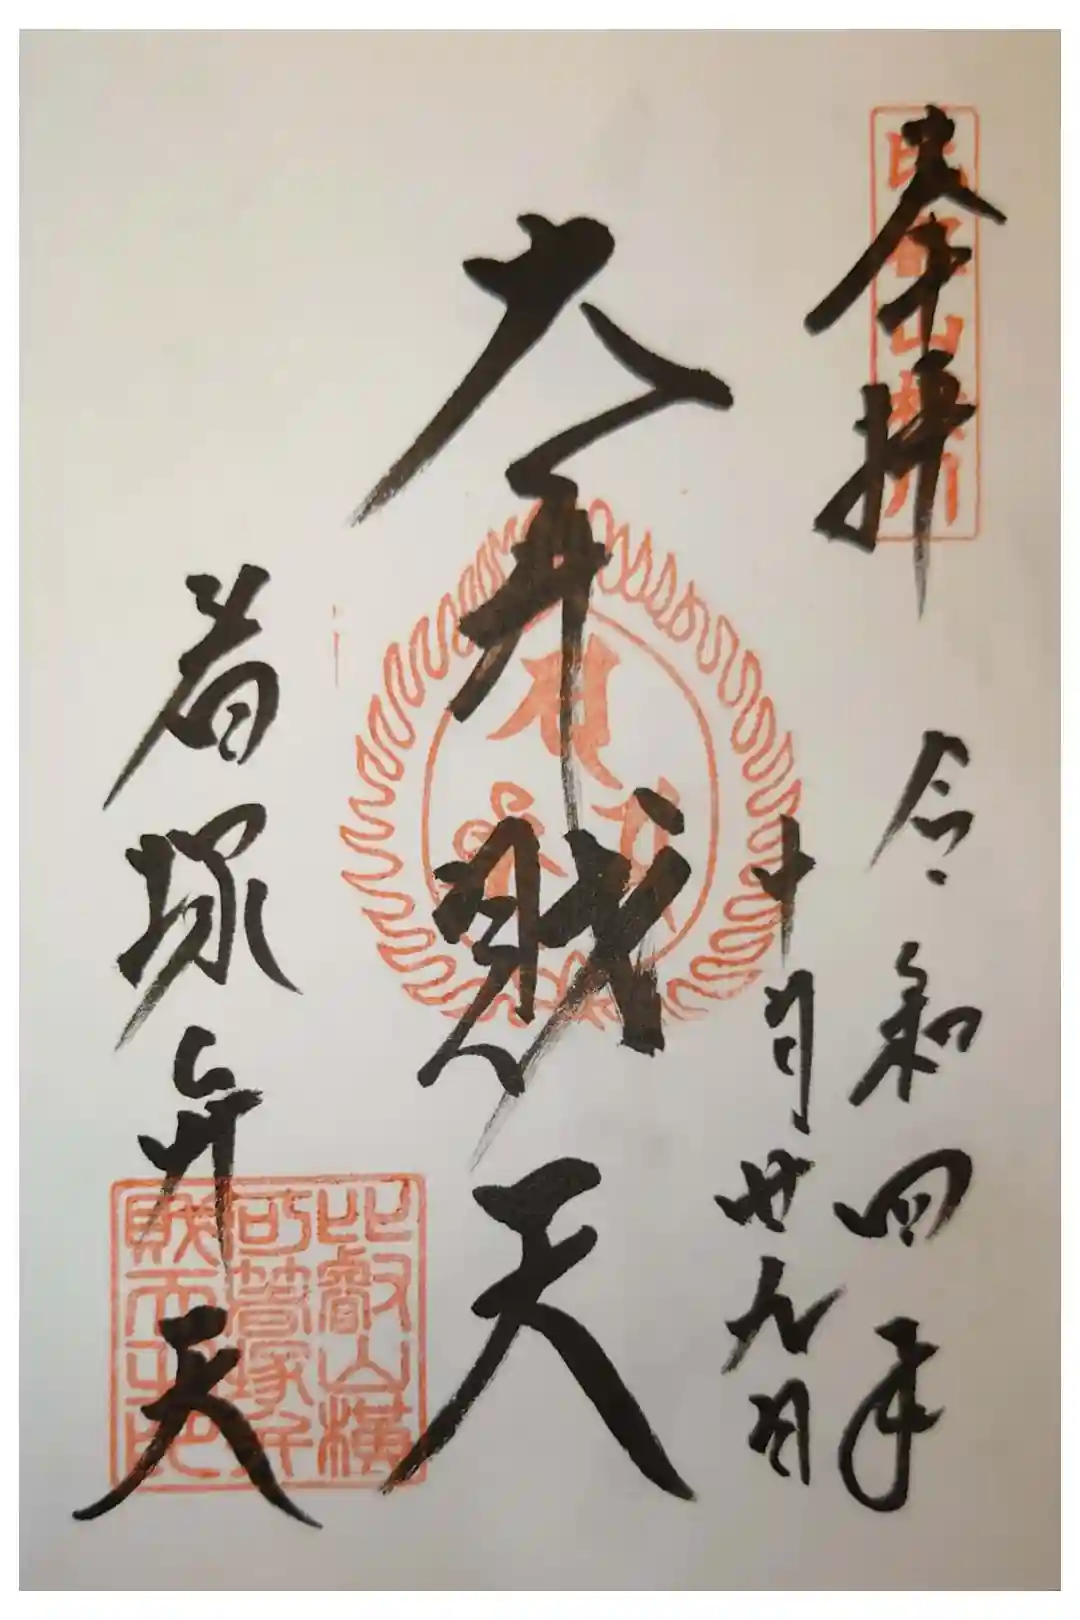 奉拝
比叡山横川
令和四年
十月廿九日
大弁財天
若塚弁天
比叡山横
財天之印